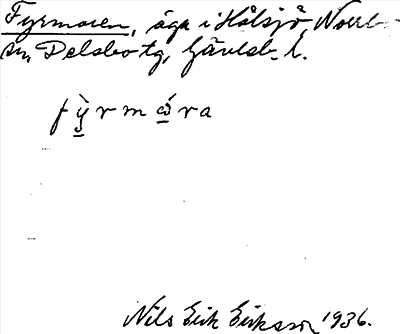 Fyrmoren, äga i Hålsjö, Norrb-
sn, Delsbo tg, Gävleb. l.
fỳrmώra
Nils Erik Eriksson 1936.